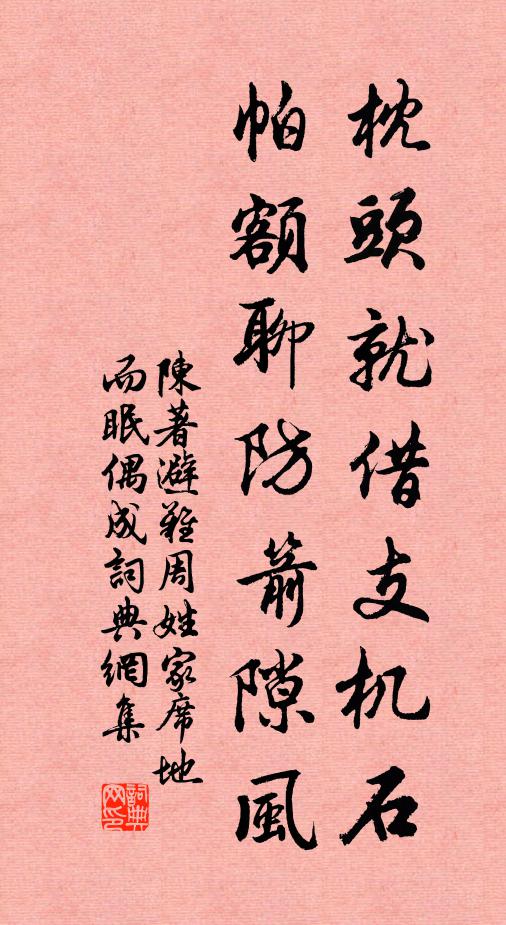 枕頭就借支机石
帕額聊防箭隙風
陳著避難周姓家席地
而眠偶成詞典網集
詞典网印